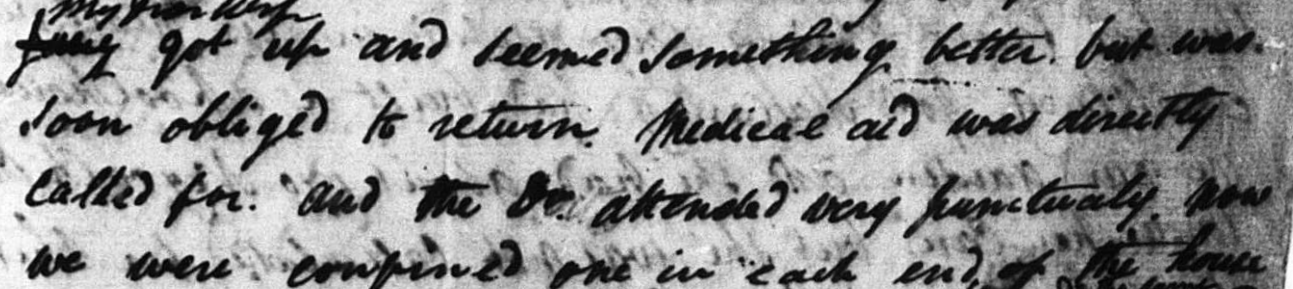 My dear Wife
got up and seemed something better. but was
soon obliged to return. Medical aid was directly
called for. and the Dr. attended very punctualy. now
we were confined one in each end, of the house